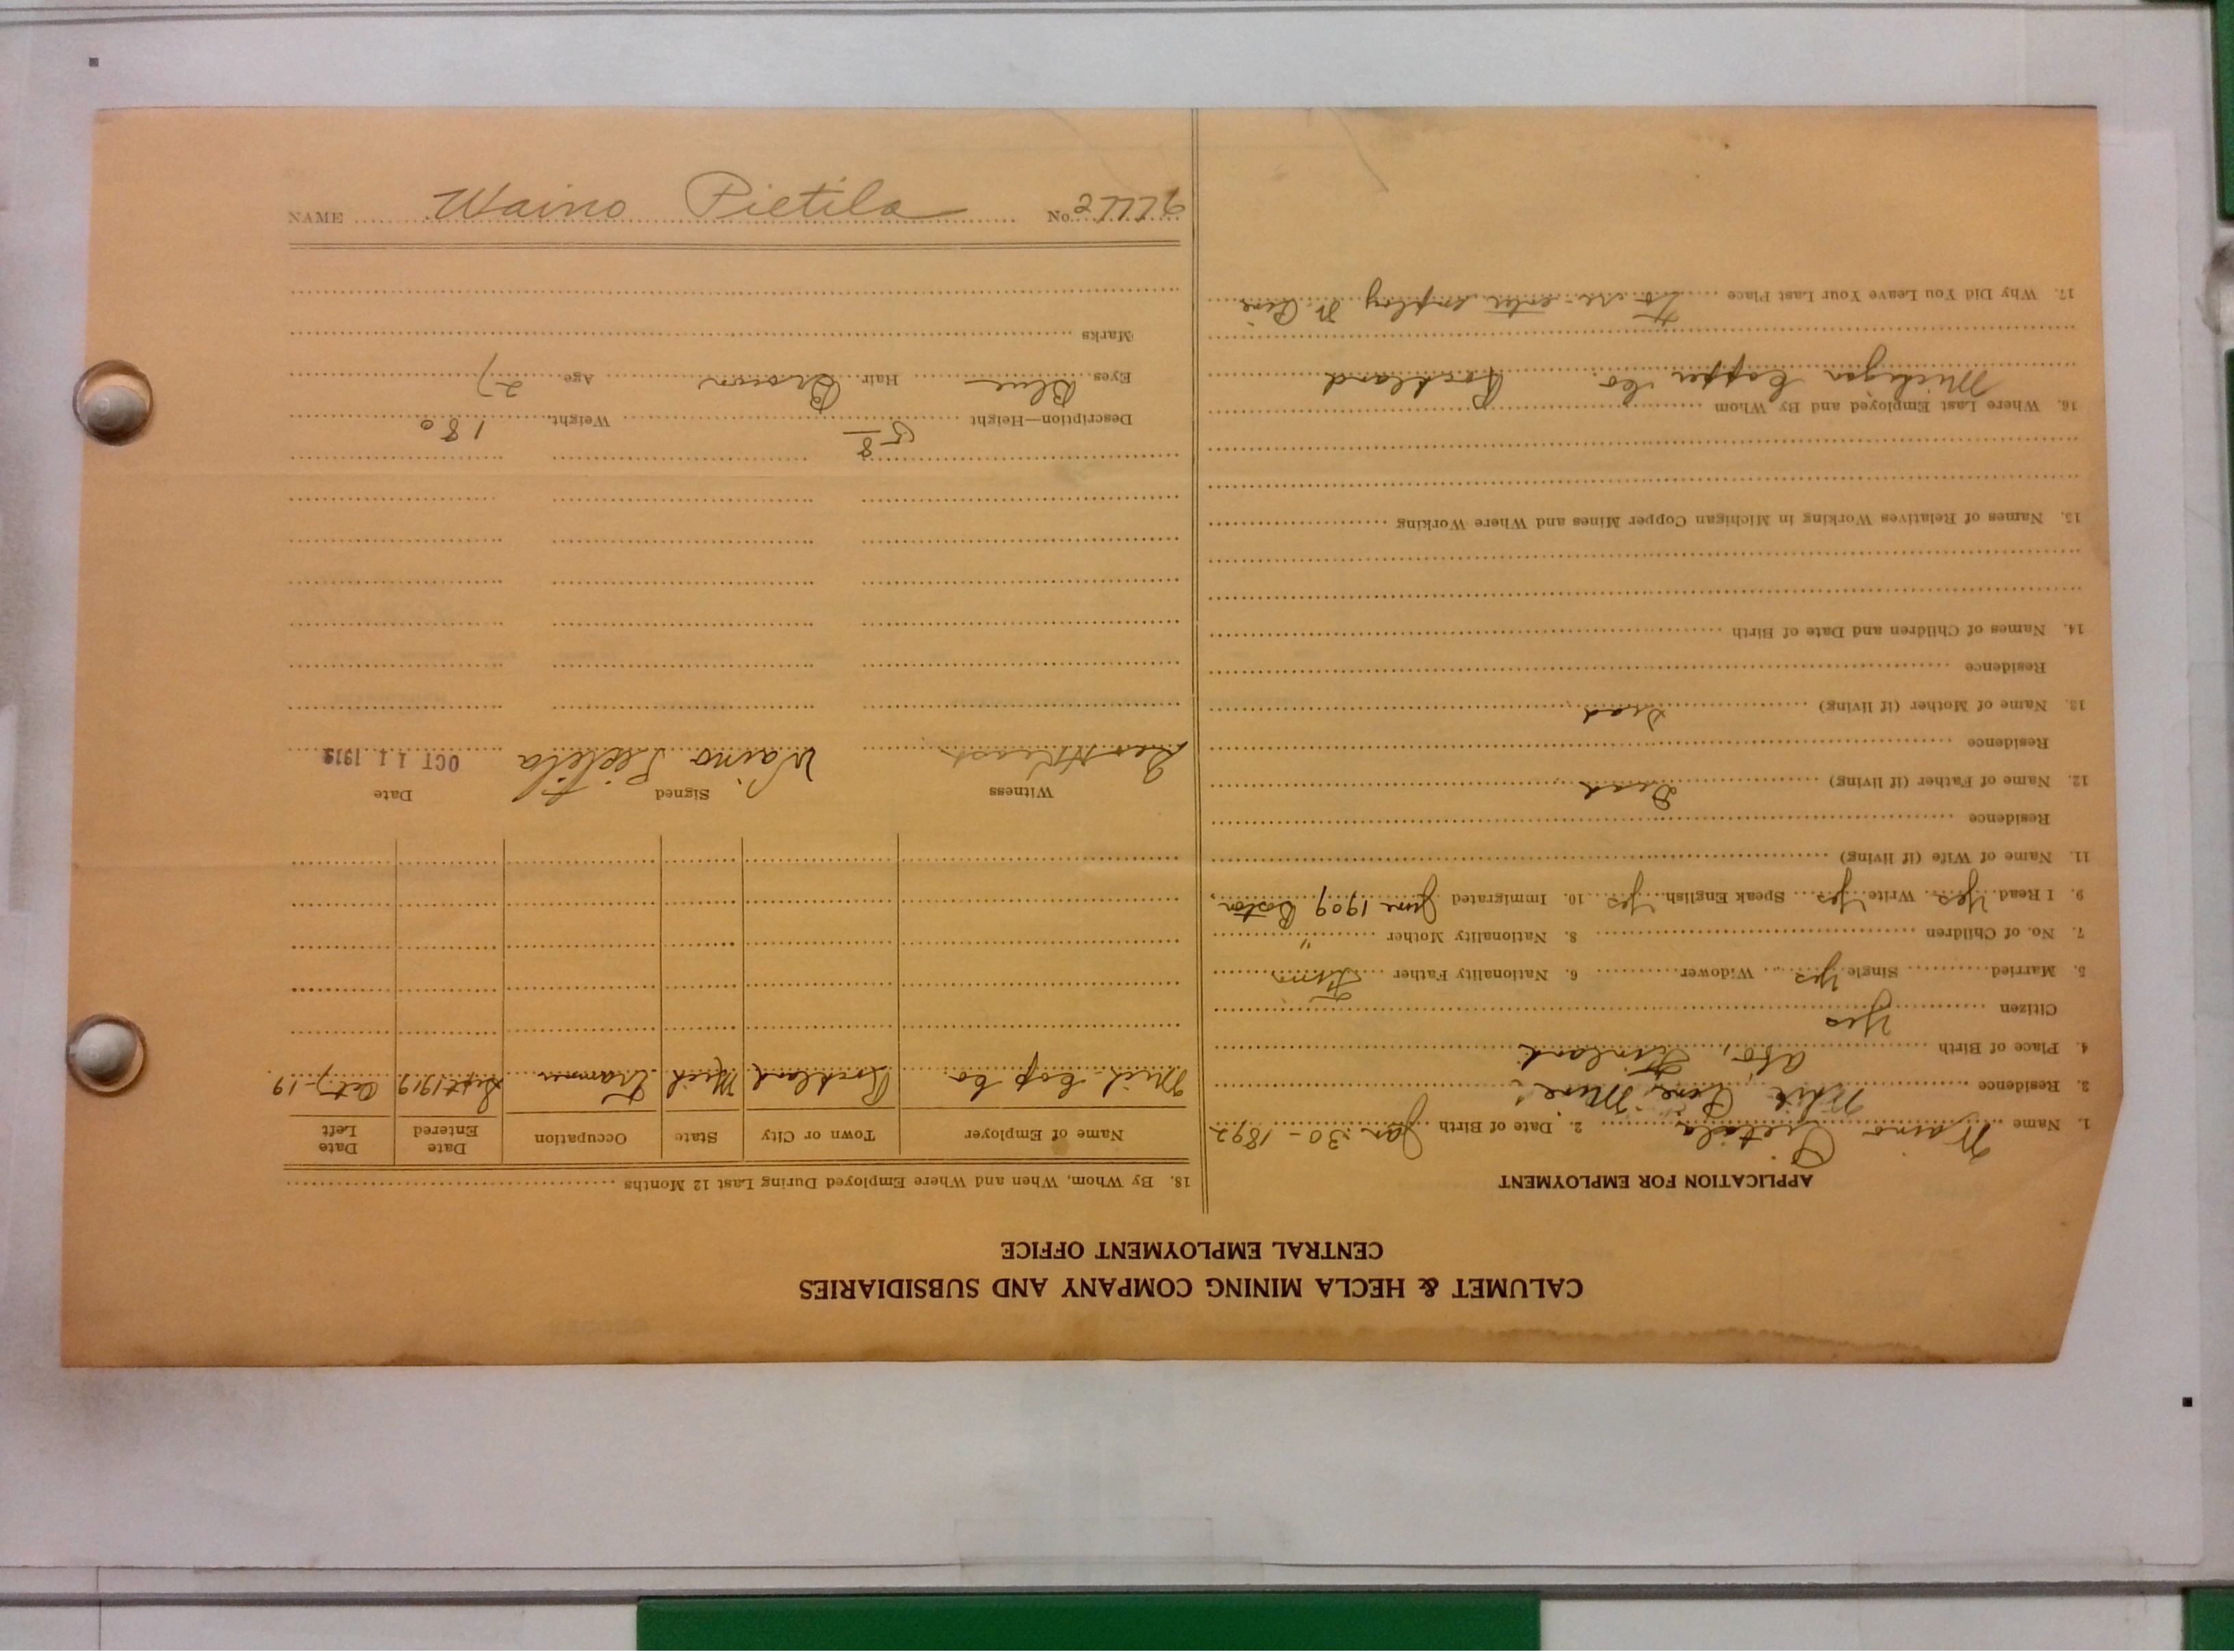 CALUMET & HECLA MINING COMPANY AND SUBSIDIARIES
CENTRAL EMPLOYMENT OFFICE
APPLICATION FOR EMPLOYMENT
1. Name Waino Pietila 2. Date of Birth Jan. 30 - 1892
3. Residence White Pine, Mine
4. Place of Birth Abo, Finland
Citizen Yes
5. Married Single Yes Widower 6. Nationality Father Finn
7. No. of Children 8. Nationality Mother "
9. I Read Yes Write Yes Speak English Yes 10. Immigrated June 1909 Boston
11. Name of Wife (if living)
Residence
12. Name of Father (if living) Dead
Residence
13. Name of Mother (if living) Dead
Residence
14. Names of Children and Date of Birth
15. Names of Relatives Working in Michigan Copper Mines and Where Working
16. Where Last Employed and By Whom
Michigan Copper Co. Rockland
17. Why Did You Leave Your Last Place To re-enter employ W. Pine
18. By Whom, When and Where Employed During Last 12 Months
Name of Employer Town or City State Occupation Date Entered Date Left
Mich Cop Co. Rockland Mich Trammer Sept 1919 Oct 7-19
Witness Signed Date
Waino Pietila OCT 11 1919
Description—Height 5-8 Weight 180
Eyes Blue Hair Brown Age 27
Marks
NAME Waino Pietila No. 27776